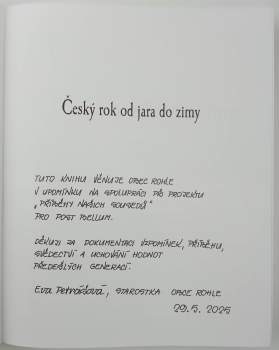 Český rok od jara do zimy
TUTO KNIHU VĚNUJE OBEC ROHLE
V UPOMÍNKU NA SPOLUPRÁCI PŘI PROJEKTU
„PŘÍBĚHY NAŠICH SOUSEDŮ“
PRO POST BELLUM.
DĚKUJI ZA DOKUMENTACI VZPOMÍNEK, PŘÍBĚHŮ,
SVĚDECTVÍ A UCHOVÁNÍ HODNOT
PŘEDEŠLÝCH GENERACÍ.
STAROSTKA OBCE ROHLE
29.5. 2025